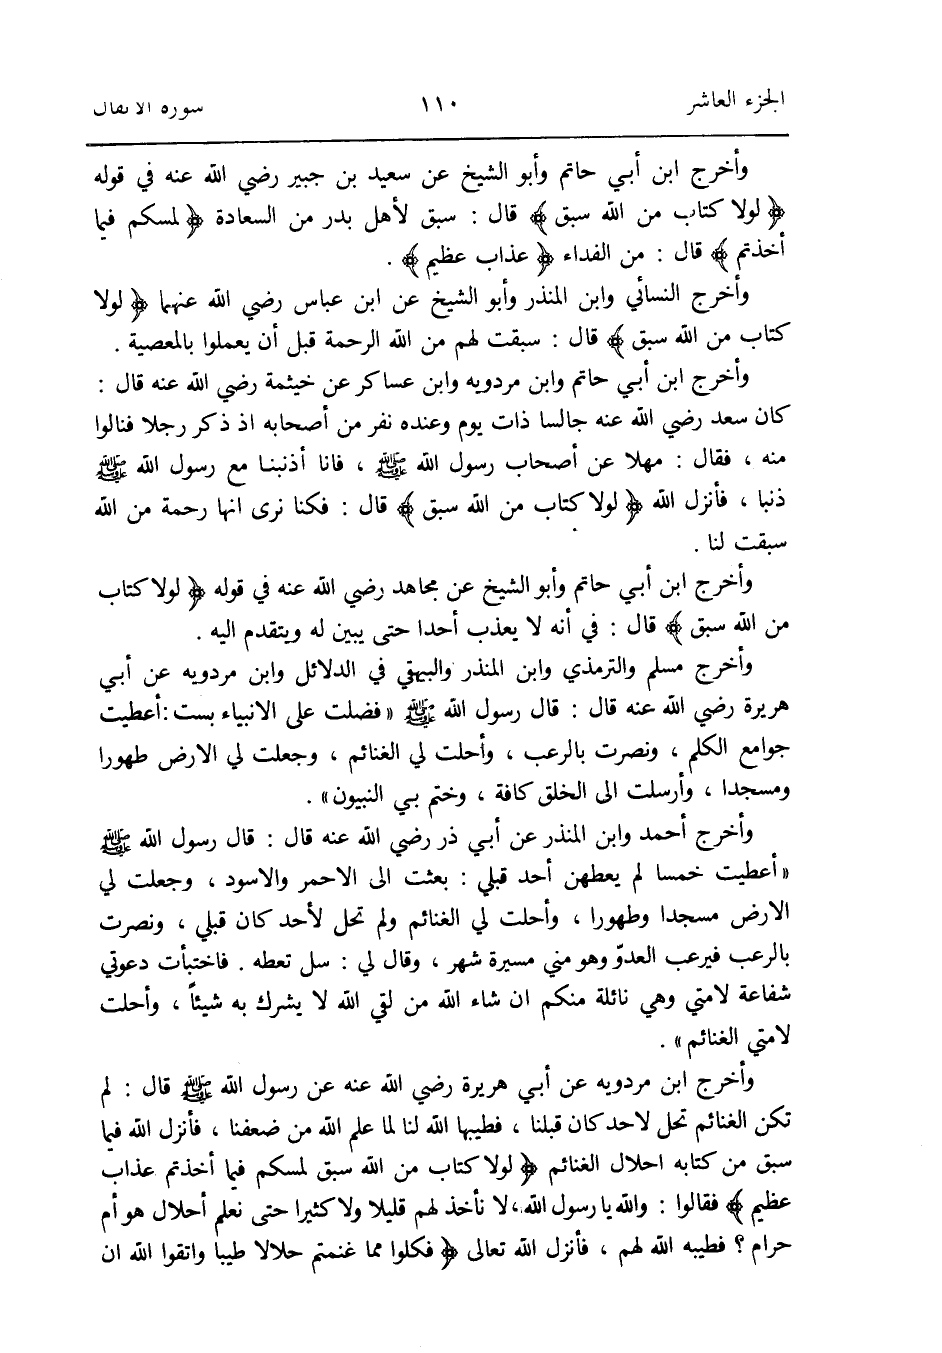 الجزء العاشر ١١٠ سورة الانفال
وأخرج ابن أبي حاتم وأبو الشيخ عن سعيد بن جبير رضي الله عنه في قوله
﴿ لولا كتاب من الله سبق ﴾ قال : سبق لأهل بدر من السعادة ﴿ لمسكم فيما
أخذتم ﴾ قال : من الفداء ﴿ عذاب عظيم ﴾ .
وأخرج النسائي وابن المنذر وأبو الشيخ عن ابن عباس رضي الله عنهما ﴿ لولا
كتاب من الله سبق ﴾ قال : سبقت لهم من الله الرحمة قبل أن يعملوا بالمعصية .
وأخرج ابن أبي حاتم وابن مردويه وابن عساكر عن خيثمة رضي الله عنه قال :
كان سعد رضي الله عنه جالسا ذات يوم وعنده نفر من أصحابه اذ ذكر رجلا فنالوا
منه ، فقال : مهلا عن أصحاب رسول الله ﷺ ، فانا أذنبنا مع رسول الله ﷺ
ذنبا ، فأنزل الله ﴿ لولا كتاب من الله سبق ﴾ قال : فكنا نرى انها رحمة من الله
سبقت لنا .
وأخرج ابن أبي حاتم وأبو الشيخ عن مجاهد رضي الله عنه في قوله ﴿ لولا كتاب
من الله سبق ﴾ قال : في أنه لا يعذب أحدا حتى يبين له ويتقدم اليه .
وأخرج مسلم والترمذي وابن المنذر والبيهقي في الدلائل وابن مردويه عن أبي
هريرة رضي الله عنه قال : قال رسول الله ﷺ «فضلت على الانبياء بست :أعطيت
جوامع الكلم ، ونصرت بالرعب ، وأحلت لي الغنائم ، وجعلت لي الارض طهورا
ومسجدا ، وأرسلت الى الخلق كافة ، وختم بي النبيون» .
وأخرج أحمد وابن المنذر عن أبي ذر رضي الله عنه قال : قال رسول الله ﷺ
«أعطيت خمسا لم يعطهن أحد قبلي : بعثت الى الاحمر والاسود ، وجعلت لي
الارض مسجدا وطهورا ، وأحلت لي الغنائم ولم تحل لأحد كان قبلي ، ونصرت
بالرعب فيرعب العدوّ وهو مني مسيرة شهر ، وقال لي : سل تعطه . فاختبأت دعوتي
شفاعة لامتي وهي نائلة منكم ان شاء الله من لقي الله لا يشرك به شيئاً ، وأحلت
لامتي الغنائم» .
وأخرج ابن مردويه عن أبي هريرة رضي الله عنه عن رسول الله ﷺ قال : لم
تكن الغنائم تحل لاحد كان قبلنا ، فطيبها الله لنا لما علم الله من ضعفنا ، فأنزل الله فيما
سبق من كتابه احلال الغنائم ﴿ لولا كتاب من الله سبق لمسكم فيما أخذتم عذاب
عظيم ﴾ فقالوا : والله يا رسول الله ،لا نأخذ لهم قليلا ولا كثيرا حتى نعلم أحلال هو أم
حرام ؟ فطيبه الله لهم ، فأنزل الله تعالى ﴿ فكلوا مما غنمتم حلالا طيبا واتقوا الله ان